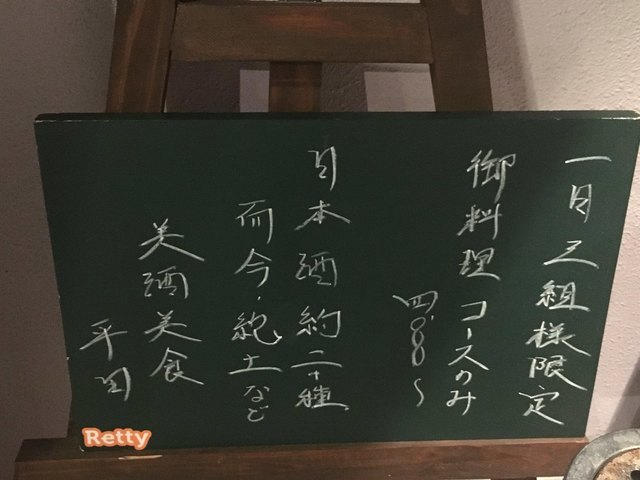 一日三組様限定
御料理コースのみ
四.000〜
日本酒約二十種
而今・鮑土など
美酒美食
平田
Retty